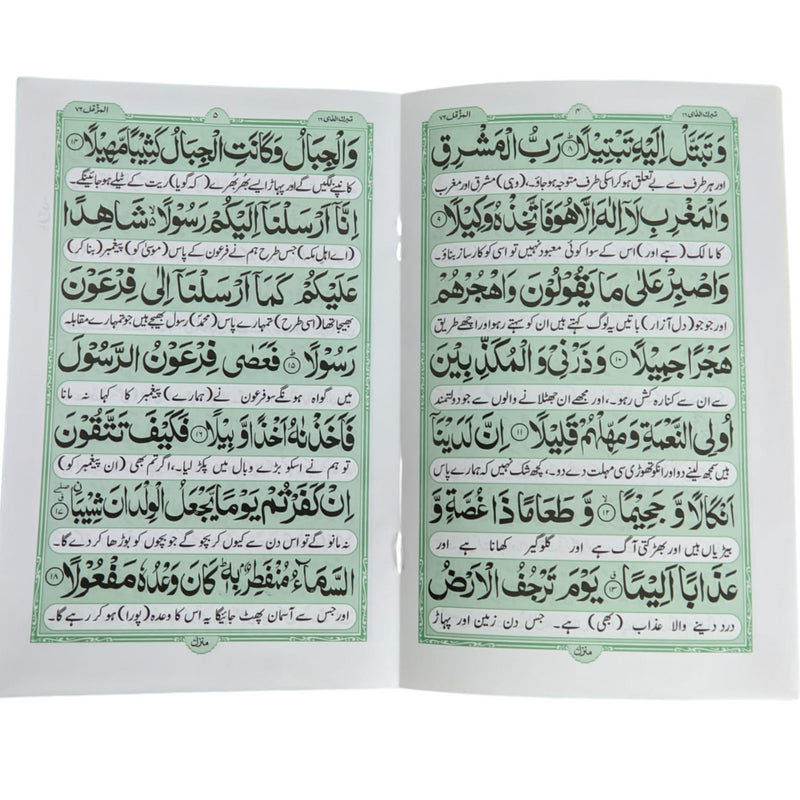 تبرك الذى ٢٩
٤
المزمل ٧٣
وَتَبَتَّلْ اِلَيْهِ تَبْتِيْلًا ۸ رَبُّ الْمَشْرِقِ
اور ہر طرف سے بے تعلق ہو کر اسکی طرف متوجہ ہو جاؤ، (وہی) مشرق اور مغرب
وَالْمَغْرِبِ لَاۤ اِلٰهَ اِلَّا هُوَ فَاتَّخِذْهُ وَكِيْلًا ۹
کا مالک (ہے اور) اس کے سوا کوئی معبود نہیں تو اسی کو کارساز بناؤ
وَاصْبِرْ عَلٰى مَا يَقُوْلُوْنَ وَاهْجُرْهُمْ
اور جو جو (دل آزار) باتیں یہ لوگ کہتے ہیں ان کو سہتے رہو اور اچھے طریق
هَجْرًا جَمِيْلًا ۱۰ وَذَرْنِيْ وَالْمُكَذِّبِيْنَ
سے ان سے کنارہ کش رہو۔، اور مجھے ان جھٹلانے والوں سے جو دولتمند
اُولِى النَّعْمَةِ وَمَهِّلْهُمْ قَلِيْلًا ۱۱ اِنَّ لَدَيْنَاۤ
ہیں سمجھ لینے دو اور انکو تھوڑی سی مہلت دے دو۔، کچھ شک نہیں کہ ہمارے پاس
اَنْكَالًا وَّجَحِيْمًا ۱۲ وَّطَعَامًا ذَا غُصَّةٍ وَّ
بیڑیاں ہیں اور بھڑکتی آگ ہے اور گلوگیر کھانا ہے اور
عَذَابًا اَلِيْمًا ۱۳ يَوْمَ تَرْجُفُ الْاَرْضُ
درد دینے والا عذاب (بھی) ہے۔ جس دن زمین اور پہاڑ
منزل
٥
المزمل ٧٣
وَالْجِبَالُ وَكَانَتِ الْجِبَالُ كَثِيْبًا مَّهِيْلًا ۱۴
کانپنے لگیں گے اور پہاڑ ایسے بھر بھرے (کہ گویا) ریت کے ٹیلے ہو جائینگے۔
اِنَّاۤ اَرْسَلْنَاۤ اِلَيْكُمْ رَسُوْلًا شَاهِدًا
(اے اہل مکہ) جس طرح ہم نے فرعون کے پاس (موسیٰ کو) پیغمبر (بنا کر)
عَلَيْكُمْ كَمَاۤ اَرْسَلْنَاۤ اِلٰى فِرْعَوْنَ
بھیجا تھا (اسی طرح) تمہارے پاس (محمد) رسول بھیجے ہیں جو تمہارے مقابلہ
رَسُوْلًا ۱۵ فَعَصٰى فِرْعَوْنُ الرَّسُوْلَ
میں گواہ ہونگے سو فرعون نے (ہمارے) پیغمبر کا کہا نہ مانا
فَاَخَذْنٰهُ اَخْذًا وَّبِيْلًا ۱۶ فَكَيْفَ تَتَّقُوْنَ
تو ہم نے اسکو بڑے وبال میں پکڑ لیا۔، اگر تم بھی (ان پیغمبر کو)
اِنْ كَفَرْتُمْ يَوْمًا يَّجْعَلُ الْوِلْدَانَ شِيْبًا ۱۷
نہ مانو گے تو اس دن سے کیوں کر بچو گے جو بچوں کو بوڑھا کر دے گا۔
السَّمَآءُ مُنْفَطِرٌۢ بِهٖ كَانَ وَعْدُهٗ مَفْعُوْلًا ۱۸
اور جس سے آسمان پھٹ جائیگا یہ اس کا وعدہ (پورا) ہو کر رہے گا۔
منزل